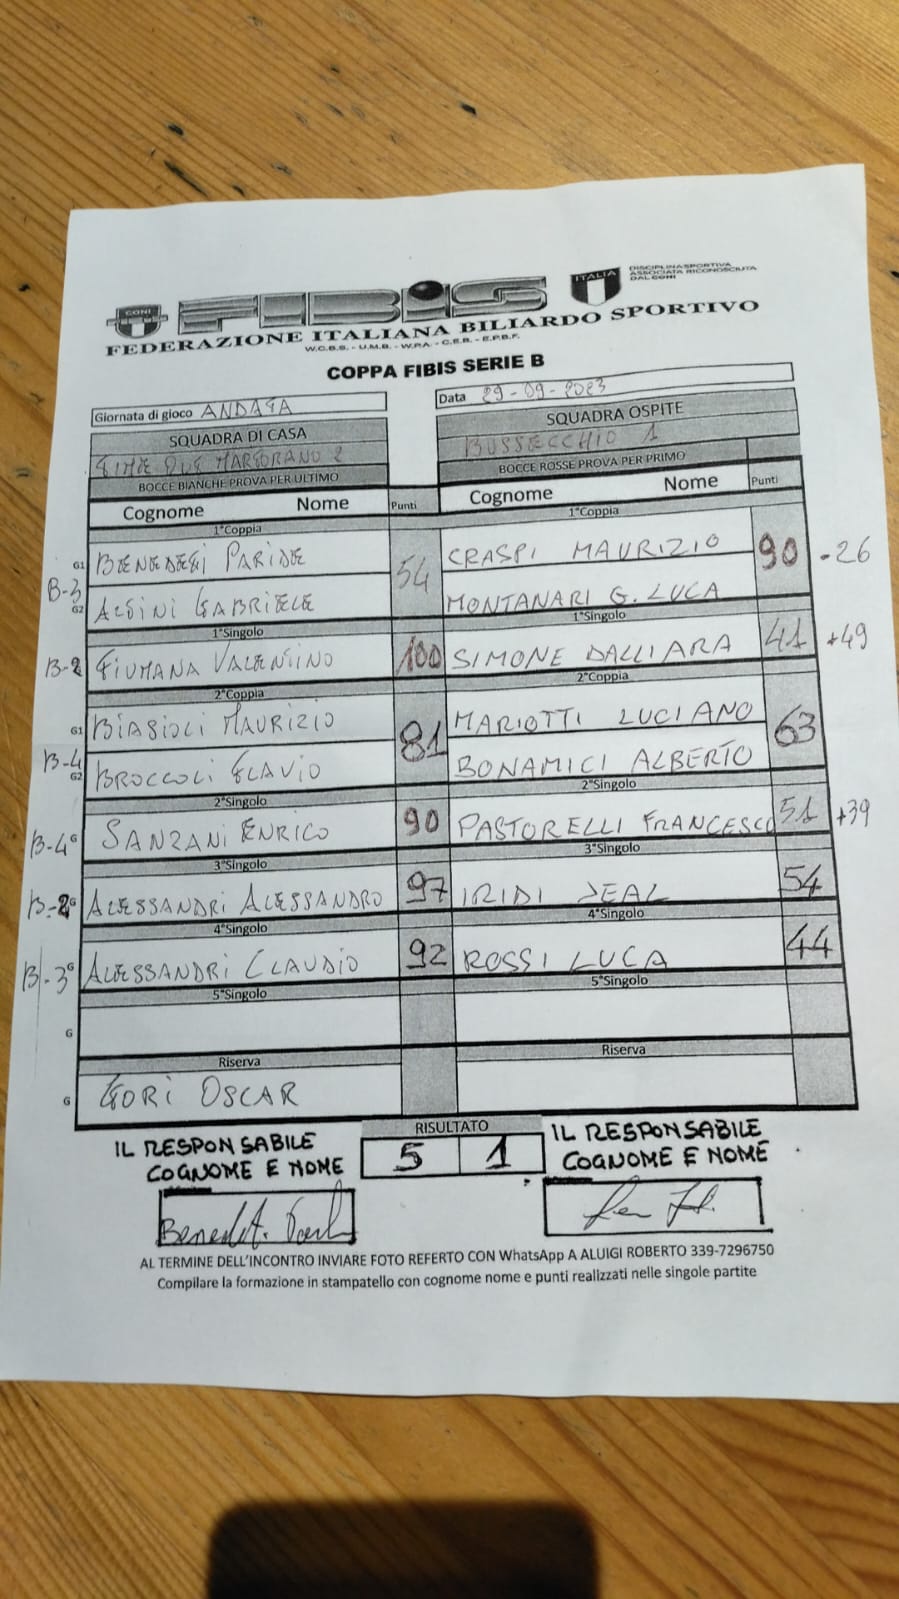 CONI
FIBIS
ITALIA
DISCIPLINA SPORTIVA
ASSOCIATA RICONOSCIUTA
DAL CONI
FEDERAZIONE ITALIANA BILIARDO SPORTIVO
W.C.B.S. - U.M.B. - W.P.A. - C.E.B. - E.P.B.F.
COPPA FIBIS SERIE B
Giornata di gioco ANDATA
Data 29-09-2023
SQUADRA DI CASA
SQUADRA OSPITE
TIME OUT MARTORANO 2
BUSSECCHIO 1
BOCCE BIANCHE PROVA PER ULTIMO
BOCCE ROSSE PROVA PER PRIMO
Cognome Nome Punti Cognome Nome Punti
1°Coppia 1°Coppia
G1 BENEDETTI PARIDE 54 CRASPI MAURIZIO 90 -26
B-3
G2 ALSINI GABRIELE MONTANARI G. LUCA
1°Singolo 1°Singolo
B-2 FIUMANA VALENTINO 100 SIMONE DALL'ARA 41 +49
2°Coppia 2°Coppia
G1 BIASIOLI MAURIZIO 81 MARIOTTI LUCIANO 63
B-4
G2 BROCCOLI FLAVIO BONAMICI ALBERTO
2°Singolo 2°Singolo
B-4 G SANZANI ENRICO 90 PASTORELLI FRANCESCO 51 +39
3°Singolo 3°Singolo
B-2 G ALESSANDRI ALESSANDRO 97 IRIDI JEAL 54
4°Singolo 4°Singolo
B-3 G ALESSANDRI CLAUDIO 92 ROSSI LUCA 44
5°Singolo 5°Singolo
G
Riserva Riserva
G GORI OSCAR
RISULTATO
5 1
IL RESPONSABILE
COGNOME E NOME
IL RESPONSABILE
COGNOME E NOME
AL TERMINE DELL'INCONTRO INVIARE FOTO REFERTO CON WhatsApp A ALUIGI ROBERTO 339-7296750
Compilare la formazione in stampatello con cognome nome e punti realizzati nelle singole partite